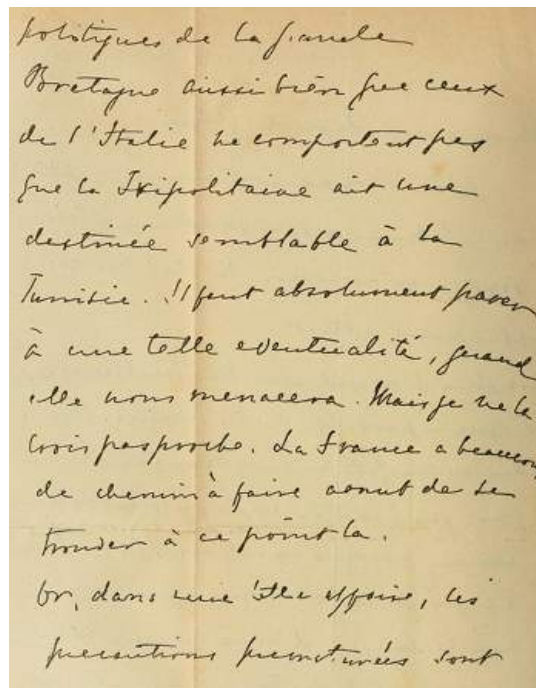 politiques de la Grande
Bretagne aussi bien que ceux
de l'Italie ne comportent pas
que la Tripolitaine ait une
destinée semblable à la
Tunisie. Il faut absolument parer
à une telle eventualité, quand
elle nous menacera. Mais je ne la
crois pas proche. La France a beaucoup
de chemin à faire avant de se
trouver à ce point la.
Or, dans une telle affaire, les
precautions prematurées sont